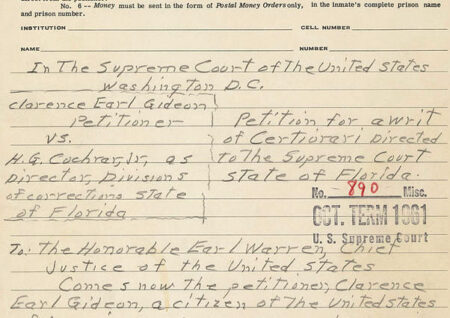 No. 6 -- Money must be sent in the form of Postal Money Orders only, in the inmate's complete prison name
and prison number.
INSTITUTION CELL NUMBER
NAME NUMBER
In The Supreme Court of The United States
Washington D.C.
clarence Earl Gideon
Petitioner
vs.
H.G. Cochran, Jr, as
Director, Divisions
of corrections state
of Florida
Petition for a writ
of Certiorari Directed
to The Supreme Court
state of Florida.
No. 890 Misc.
OCT. TERM 1961
U. S. Supreme Court
To: The Honorable Earl Warren, Chief
Justice of the United States
Comes now the petitioner, Clarence
Earl Gideon, a citizen of The United states